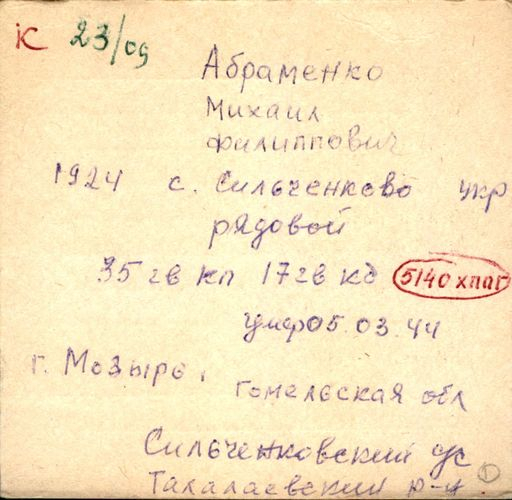 К 23/09
Абраменко
Михаил
Филиппович
1924 с. Сильченково укр
рядовой
35 гв кп 17 гв кд 5140 хппг
умер 05.03.44
г. Мозырь,
Гомельская обл
Сильченковский с/с
Талалаевский р-н